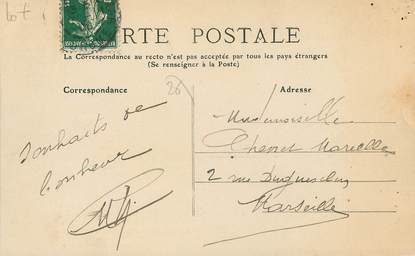 lot
RTE POSTALE
La Correspondance au recto n'est pas acceptée par tous les pays étrangers
(Se renseigner à la Poste)
Correspondance
Adresse
26
souhaits de
bonheur
Mademoiselle
Marcelle
2 rue Duguesclin
Marseille